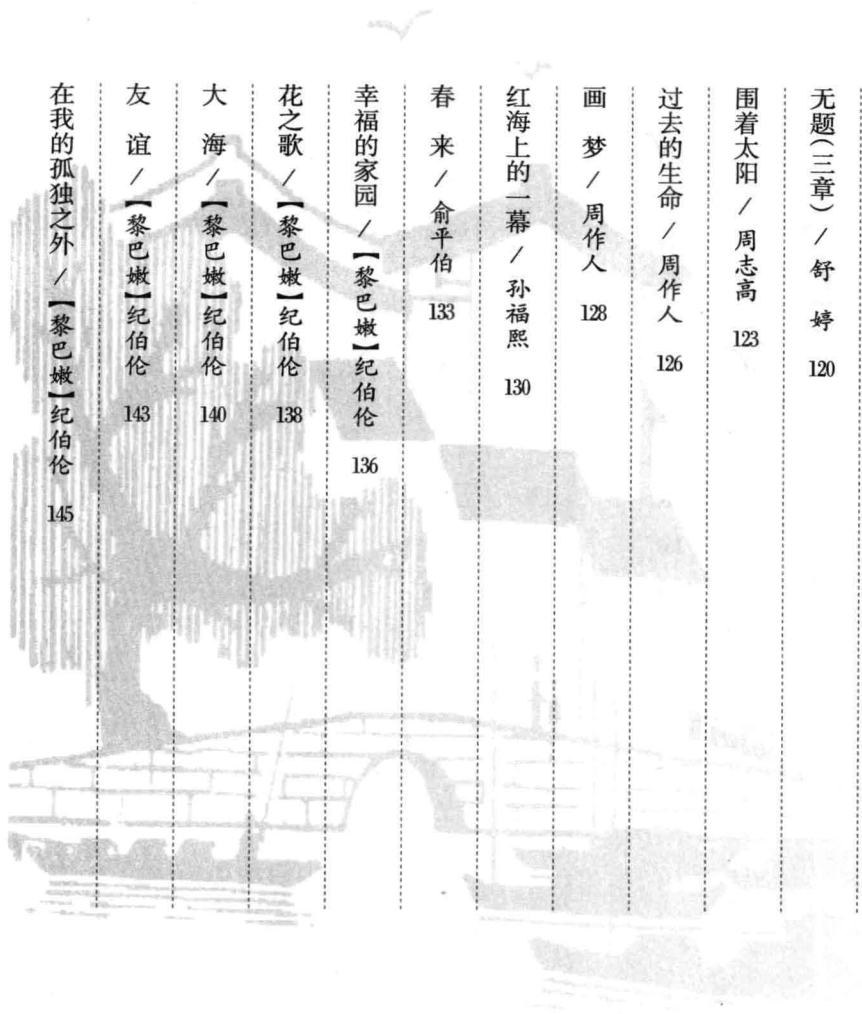 无题(三章) / 舒 婷 120
围着太阳 / 周志高 123
过去的生命 / 周作人 126
画 梦 / 周作人 128
红海上的一幕 / 孙福熙 130
春 来 / 俞平伯 133
幸福的家园 / 【黎巴嫩】纪伯伦 136
花之歌 / 【黎巴嫩】纪伯伦 138
大 海 / 【黎巴嫩】纪伯伦 140
友 谊 / 【黎巴嫩】纪伯伦 143
在我的孤独之外 / 【黎巴嫩】纪伯伦 145